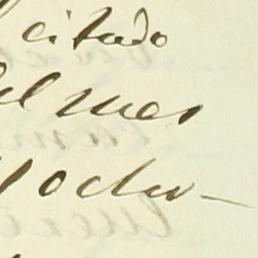 citado
el mes
ocho